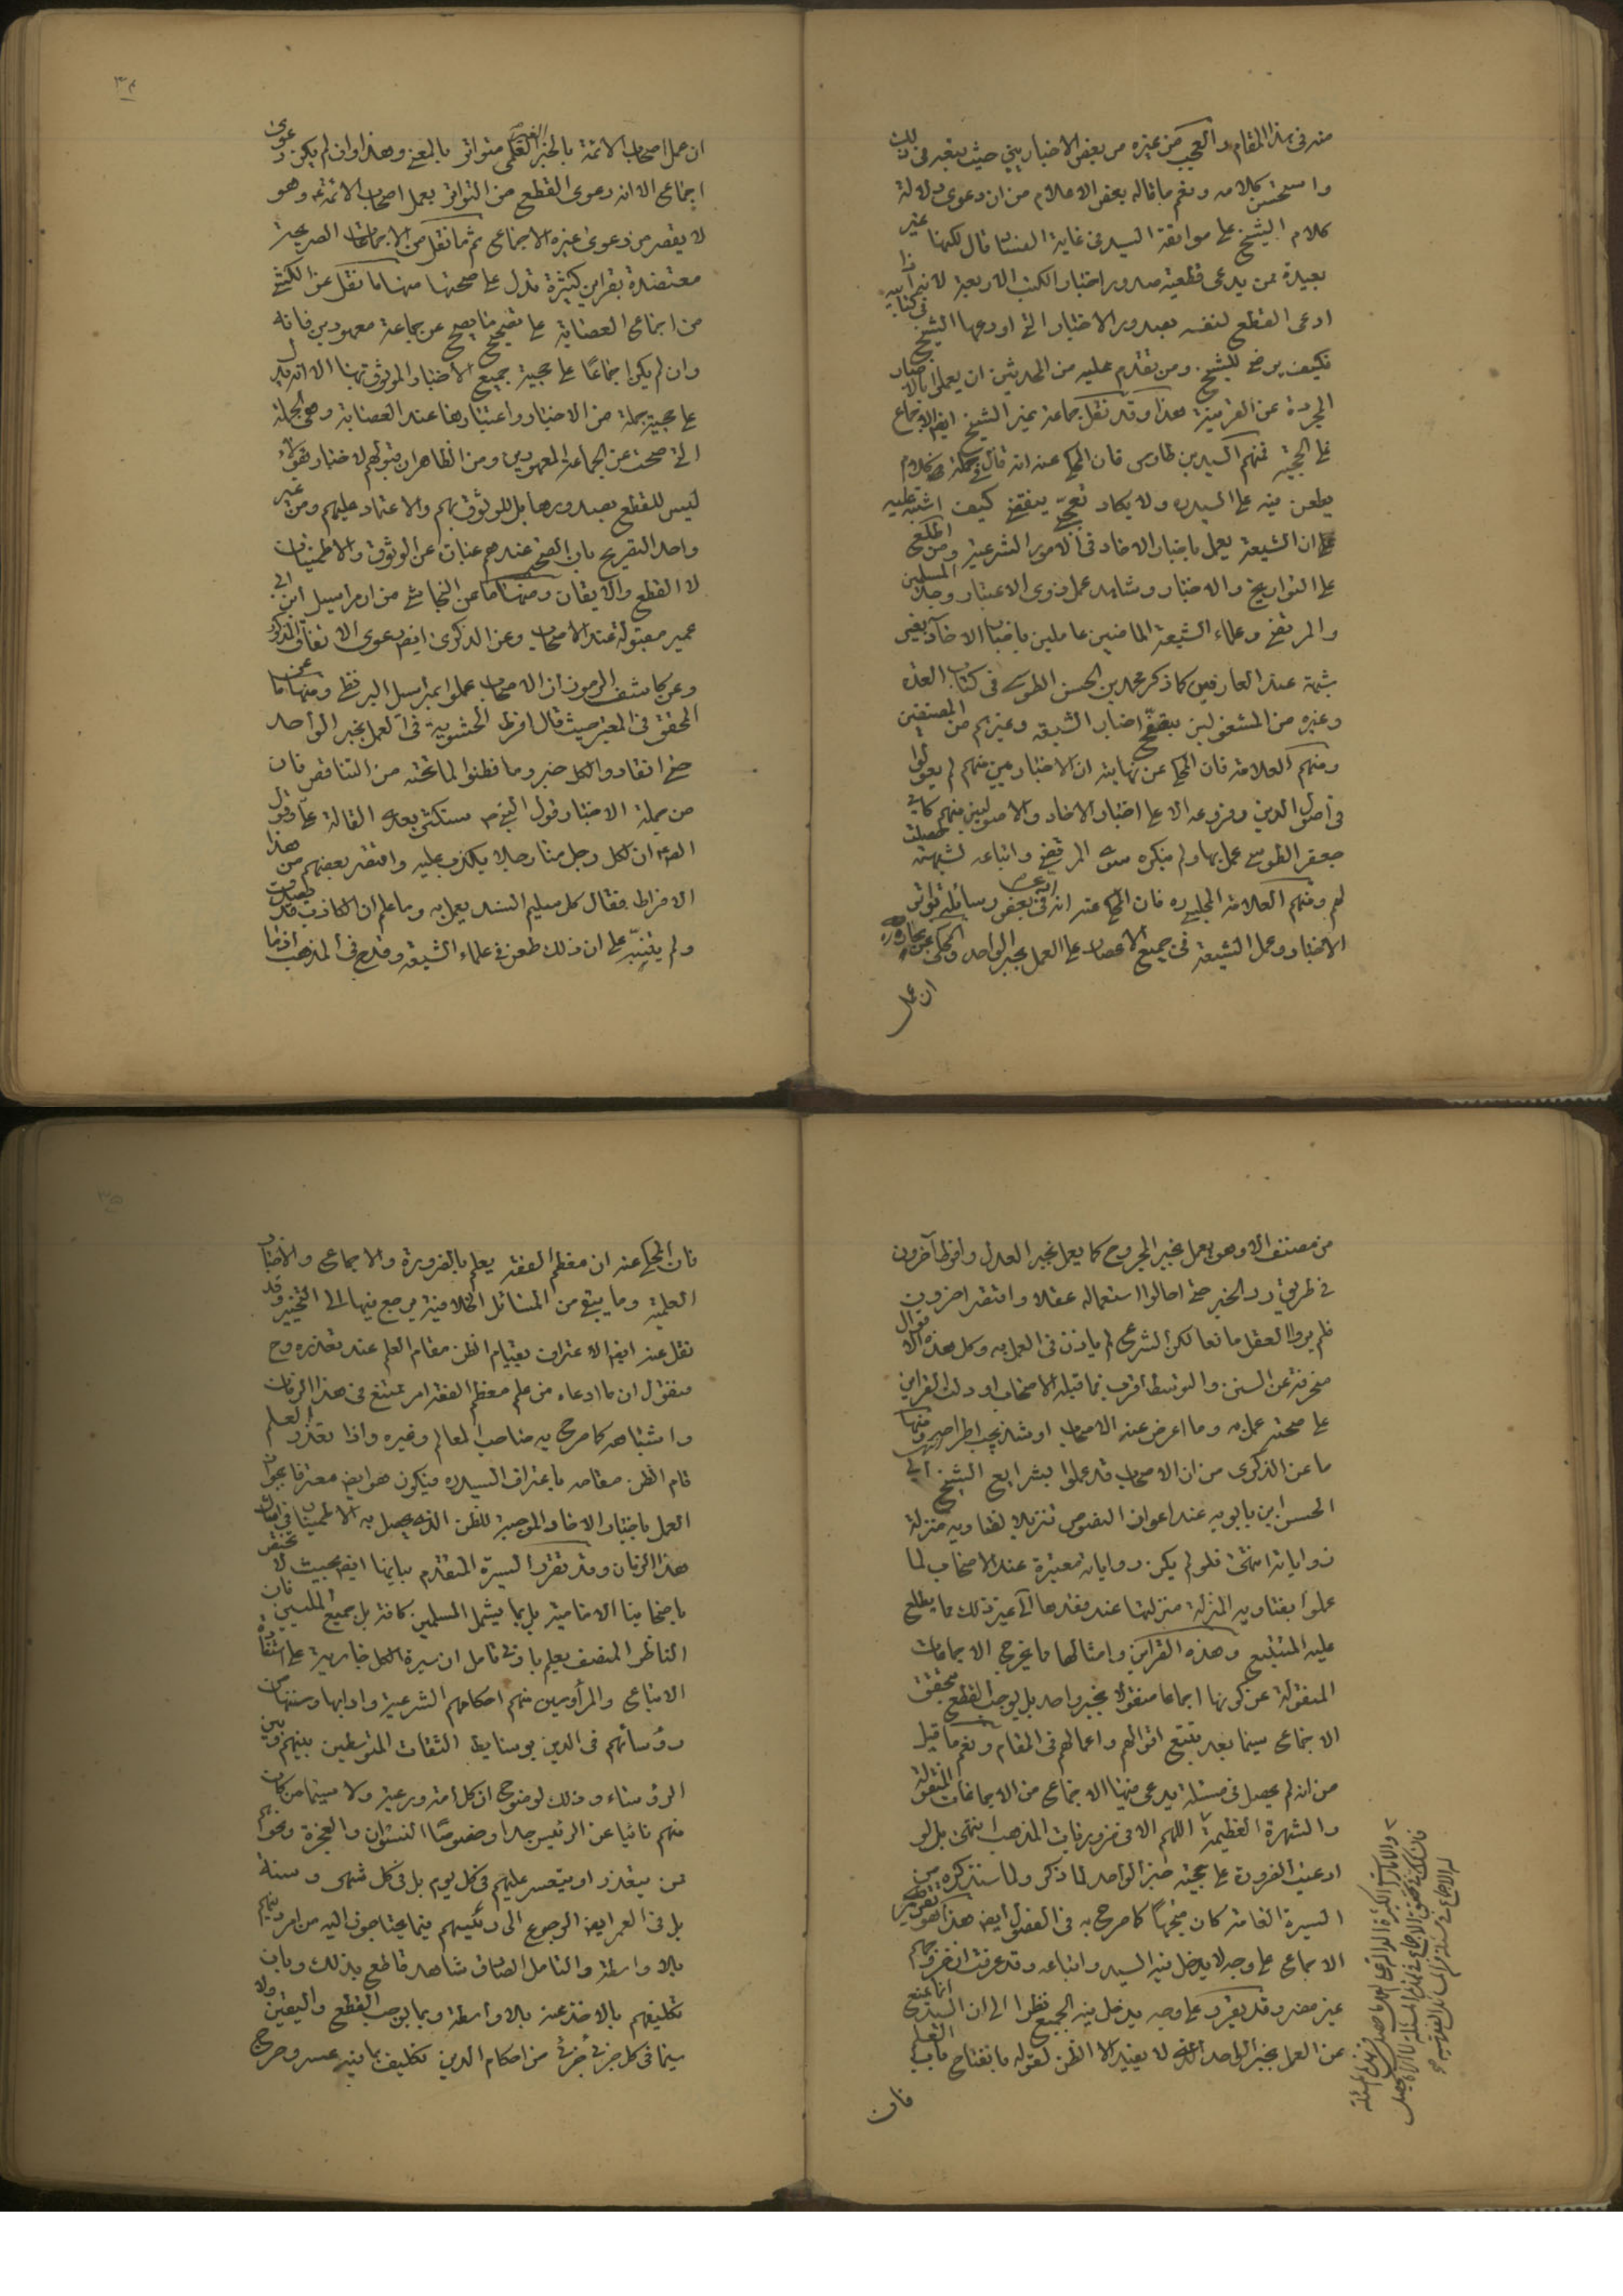 منه فى هذا المقام والعجب من غيره من بعض الاخباريين حيث تبعه فى ذلك
واستحسن كلامه ونعم ما قاله بعض الاعلام من ان دعوى دلالة
كلام الشيخ على موافقة السيد فى غاية الفساد قال لكنها غير
بعيدة ممن يدعى قطعية صدور اخبار الكتب الاربعة لانه اذا
ادعى القطع لنفسه بصدور الاخبار التى اودعها الشيخ فى كتابيه
فكيف يرضى للشيخ ومن تقدم عليه من المحدثين ان يعملوا بالاخبار
المجردة عن القرينة هذا وقد نقل جماعة غير الشيخ ايضا الاجماع
على الحجية فمنهم السيد بن طاوس فان المحكى عنه انه قال فى جملة كلام
يطعن فيه على السيد ره ولا يكاد تعجبى ينقضى كيف اشتبه عليه
ان الشيعة يعمل باخبار الاحاد فى الامور الشرعية ومن اطلع
على التواريخ والاخبار وشاهد عمل ذوى الاعتبار وجد المسلمين
والمرتضى وعلماء الشيعة الماضين عاملين باخبار الاحاد بغير
شبهة عند العارفين كما ذكر محمد بن الحسن الطوسى فى كتاب العدة
وغيره من المشغولين بتصفح اخبار الشيعة وغيرهم من المصنفين
ومنهم العلامة فان المحكى عن نهايته ان الاخباريين منهم لم يعولوا
فى اصول الدين وفروعه الا على اخبار الاحاد والاصوليين منهم كابى
جعفر الطوسى عمل بها ولم ينكره سوى المرتضى واتباعه لشبهة حصلت
لهم ومنهم العلامة المجلسى ره فان المحكى عنه انه ادعى فى بعض رسائله تواتر
الاخبار وعمل الشيعة فى جميع الاعصار على العمل بخبر الواحد والمحكى عن بحاره
ان عمل
ان عمل اصحاب الائمة بالخبر الغير العلمى متواتر بالمعنى وهذا وان لم يكن دعوى
اجماع الا انه دعوى القطع من التواتر بعمل اصحاب الائمة ع وهو
لا يقصر من دعوى غيره الاجماع ثم ما نقل من الاجماعات الصريحة
معتضدة بقراين كثيرة تدل على صحتها منها ما نقل عن الكشى
من اجماع العصابة على تصحيح ما يصح عن جماعة معهودين فانه
وان لم يكن اجماعا على حجية جميع الاخبار الموثوق بها الا انه يدل
على حجية جملة من الاخبار واعتبارها عند العصابة وهى الجملة
التى صحت عن الجماعة المعهودين ومن الظاهر ان قبولهم لاخبار هؤلاء
ليس للقطع بصدورها بل للوثوق بهم والاعتماد عليهم ومن غير
واحد التصريح بان الصحيح عندهم عبارة عن الوثوق والاطمينان
لا القطع والايقان ومنها ما عن النجاشى من ان مراسيل ابن ابى
عمير مقبولة عند الاصحاب وعن الذكرى ايضا دعوى الاتفاق المذكور
وعن كاشف الرموز ان الاصحاب عملوا بمراسيل البزنطى ومنها ما عن
المحقق فى المعتبر حيث قال افرط الحشوية فى العمل بخبر الواحد
حتى انقادوا لكل خبر وما فطنوا لما تحته من التناقض فان
من جملة الاخبار قول النبى ص ستكثر بعدى القالة على وقول
الصادق ع ان لكل رجل منا رجلا يكذب عليه واقتصر بعضهم من هذا
الافراط فقال كل سليم السند يعمل به وما علم ان الكاذب قد يصدق
ولم يتنبه على ان ذلك طعن فى علماء الشيعة وقدح فى المذهب اذ ما
من مصنف الا وهو يعمل بخبر المجروح كما يعمل بخبر العدل وافرط آخرون
فى طريق رد الخبر حتى احالوا استعماله عقلا واقتصر اخرون
فلم يروا العقل مانعا لكن الشرع لم ياذن فى العمل به وكل هذه الاقوال
منحرفة عن السنن والتوسط اقرب فما قبله الاصحاب او دلت القراين
على صحته عمل به وما اعرض عنه الاصحاب او شذ يجب اطراحه ومنها
ما عن الذكرى من ان الاصحاب قد عملوا بشرايع الشيخ ابى
الحسن ابن بابويه عند اعواز النصوص تنزيلا لفتاويه منزلة
رواياته انتهى فلو لم يكن رواياته معتبرة عند الاصحاب لما
عملوا بفتاويه المنزلة منزلتها عند فقدها الى غير ذلك مما يطلع
عليه المتتبع وهذه القراين وامثالها مما يخرج الاجماعات
المنقولة عن كونها اجماعا منقولا بخبر واحد بل يوجب القطع بتحقق
الاجماع سيما بعد تتبع اقوالهم واعمالهم فى المقام ونعم ما قيل
من انه لم يحصل فى مسئلة يدعى فيها الاجماع من الاجماعات المنقولة
والشهرة العظيمة اللهم الا فى ضروريات المذهب انتهى بل لو
ادعيت الضرورة على حجية خبر الواحد لما ذكر ولما سنذكره من
السيرة العامة كان متجها كما صرح به فى الفصول ايضا هذا كله تقرير
الاجماع على وجه لا يدخل فيه السيد واتباعه وقد عرفت ان خروجهم
غير مضر وقد يقرر على وجه يدخل فيه الجميع نظرا الى ان السيد انما يمنع
عن العمل بخبر الواحد الذى لا يفيد الا الظن لقوله بانفتاح باب العلم
فان
فان المحكى عنه ان معظم الفقه يعلم بالضرورة والاجماع والاخبار
العلمية وما يبقى من المسائل الخلافية يرجع فيها الى التخيير وقد
نقل عنه ايضا الاعتراف بقيام الظن مقام العلم عند تعذره وح
فنقول ان ما ادعاه من علم معظم الفقه امر ممتنع فى هذا الزمان
واشباهه كما صرح به صاحب المعالم وغيره واذا تعذر العلم
قام الظن مقامه باعتراف السيد ره فيكون هو ايضا معترفا بجواز
العمل باخبار الاحاد الموجبة للظن الذى يحصل به الاطمينان فى امثال
هذا الزمان وقد تقرر السيرة المتقدم بيانها ايضا بحيث لا تختص
باصحابنا الامامية بل بما يشمل المسلمين كافة بل جميع المليين فان
الناظر المنصف يعلم بادنى تامل ان سيرة الكل جارية على استفادة
الاتباع والمرؤسين منهم احكامهم الشرعية وادابها وسننها من
رؤسائهم فى الدين بوسايط الثقات المتوسطين بينهم وبين
الرؤساء وذلك لوضوح ان كل امة ورعية ولا سيما من كان
منهم نائيا عن الرئيس جدا وخصوصا النسوان والعجزة ونحوهم
ممن يتعذر او يتعسر عليهم فى كل يوم بل فى كل شهر وسنة
بل فى العمر ايضا الرجوع الى رئيسهم فيما يحتاجون اليه من امر دينهم
بلا واسطة والتامل الصادق شاهد قاطع بذلك وبان
تكليفهم بالاخذ عنه بلا واسطة وبما يوجب القطع واليقين ولا
سيما فى كل جزئى جزئى من احكام الدين تكليف بما فيه عسر وحرج